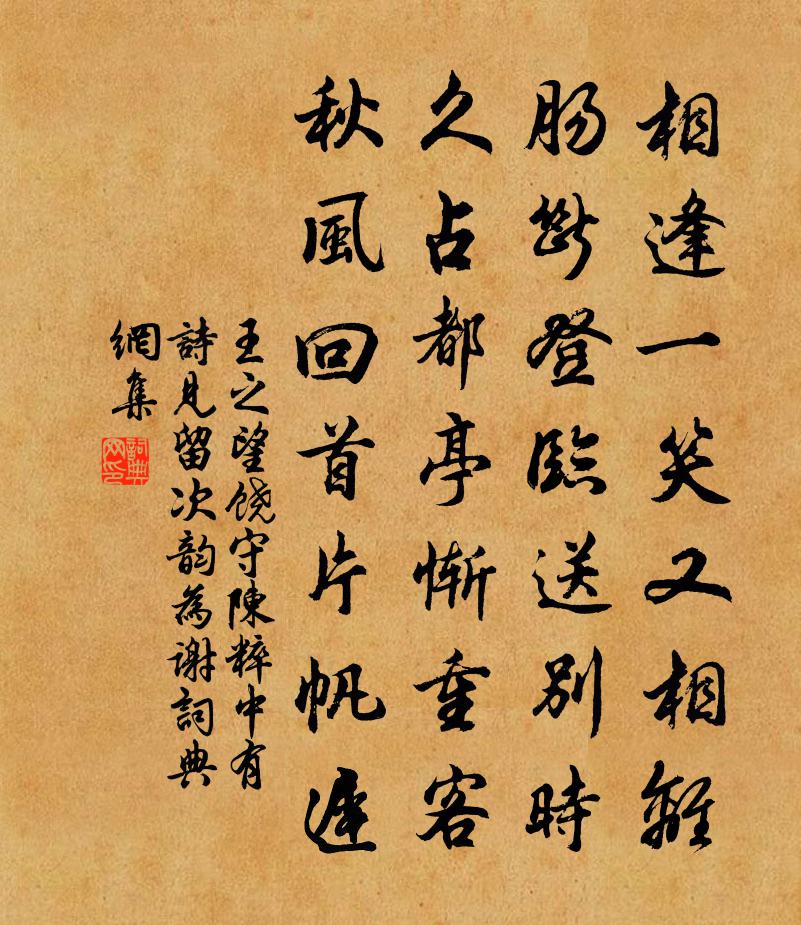 相逢一笑又相離
腸斷登臨送別時
久占都亭慚重客
秋風回首片帆遲
王之望饒守陳粹中有
詩見留次韵為謝詞典
網集
詞典
网印